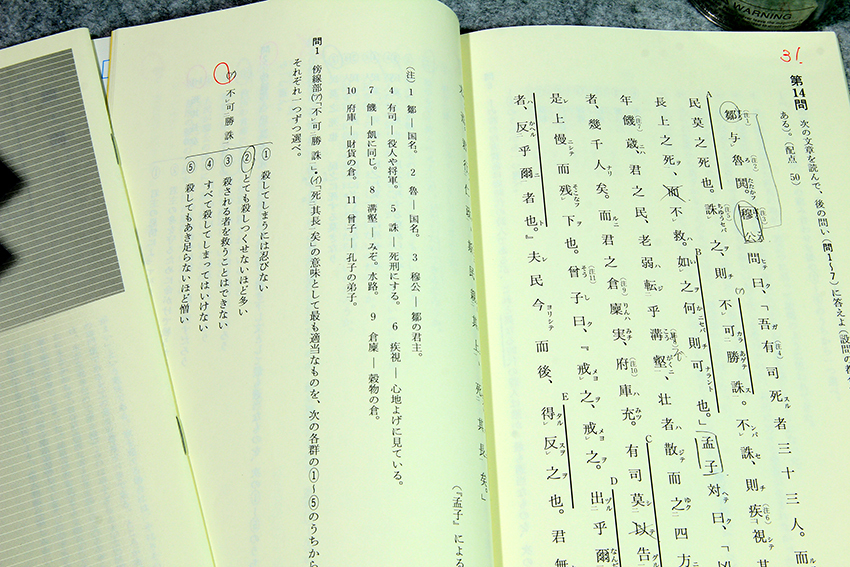 WARNING
31.
第14問 次の文章を読んで、後の問い(問1~7)に答えよ(設問の
ある)。(配点 50)
鄒与魯鬨。穆公問曰、「吾有司死者三十三人。而
民莫之死也。誅之、則不可勝誅。不誅、則疾視其
長上之死、而不救。如之何則可也。」孟子対曰、「凶
年饑歳、君之民、老弱転乎溝壑、壮者散而之四方
者、幾千人矣。而君之倉廩実、府庫充。有司莫以告。
是上慢而残下也。曾子曰、『戒之、戒之。出乎爾
者、反乎爾者也。』夫民今而後、得反之也。君無
死其長矣。」
(『孟子』による
(注) 1 鄒―国名。 2 魯―国名。 3 穆公―鄒の君主。
4 有司―役人や将軍。 5 誅―死刑にする。 6 疾視―心地よげに見ている。
7 饑―飢に同じ。 8 溝壑―みぞ。水路。 9 倉廩―穀物の倉。
10 府庫―財貨の倉。 11 曾子―孔子の弟子。
問1 傍線部(ア)「不可勝誅」・(イ)「死其長矣」の意味として最も適当なものを、次の各群の①~⑤のうちから
それぞれ一つずつ選べ。
(ア) 不可勝誅
① 殺してしまうには忍びない
② とても殺しつくせないほど多い
③ 殺される者を救うことはできない
④ すべて殺してしまってはいけない
⑤ 殺してもあき足らないほど憎い